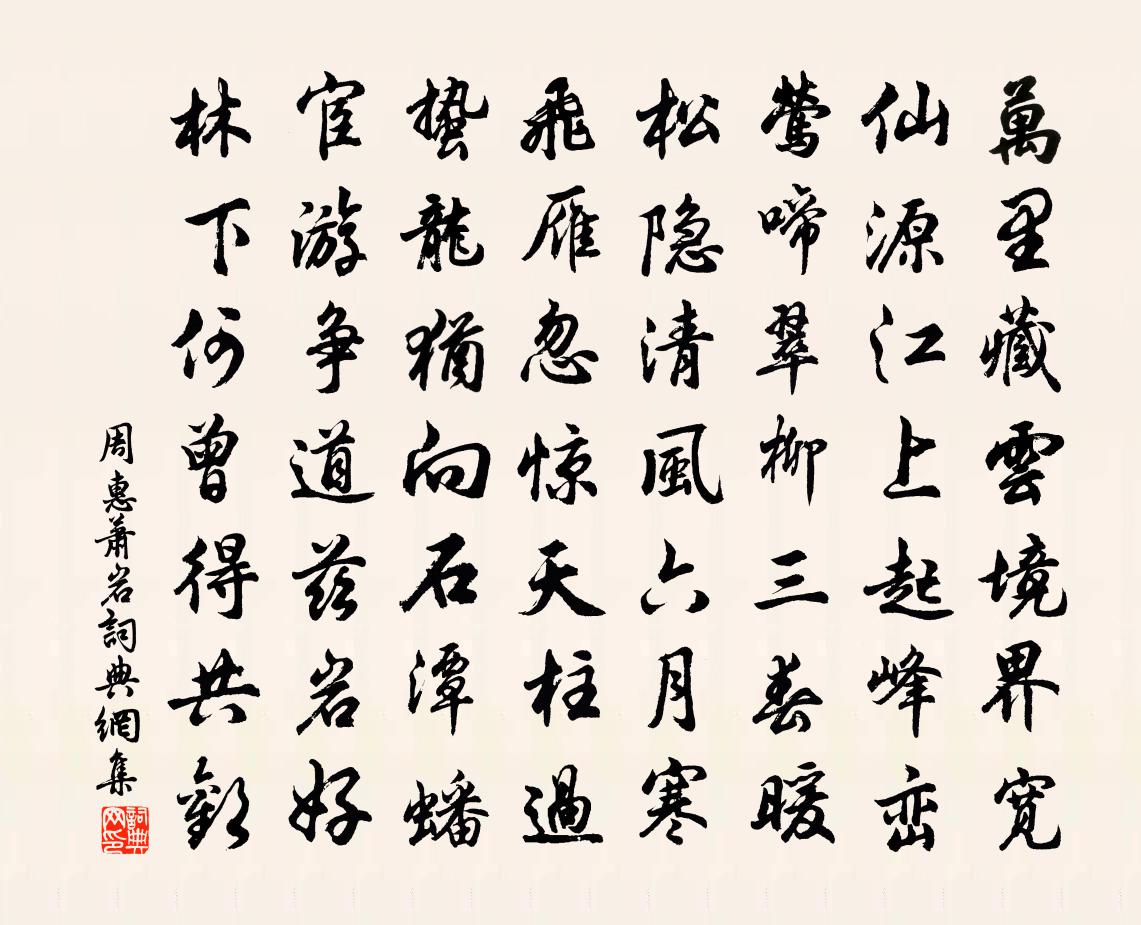 萬里藏雲境界寬
仙源江上起峰峦
鶯啼翠柳三春暖
松隐清風六月寒
飛雁忽惊天柱過
蟄龍猶向石潭蟠
宦游争道兹岩好
林下何曾得共歡
周惠蕭岩詞典網集
詞典
网印